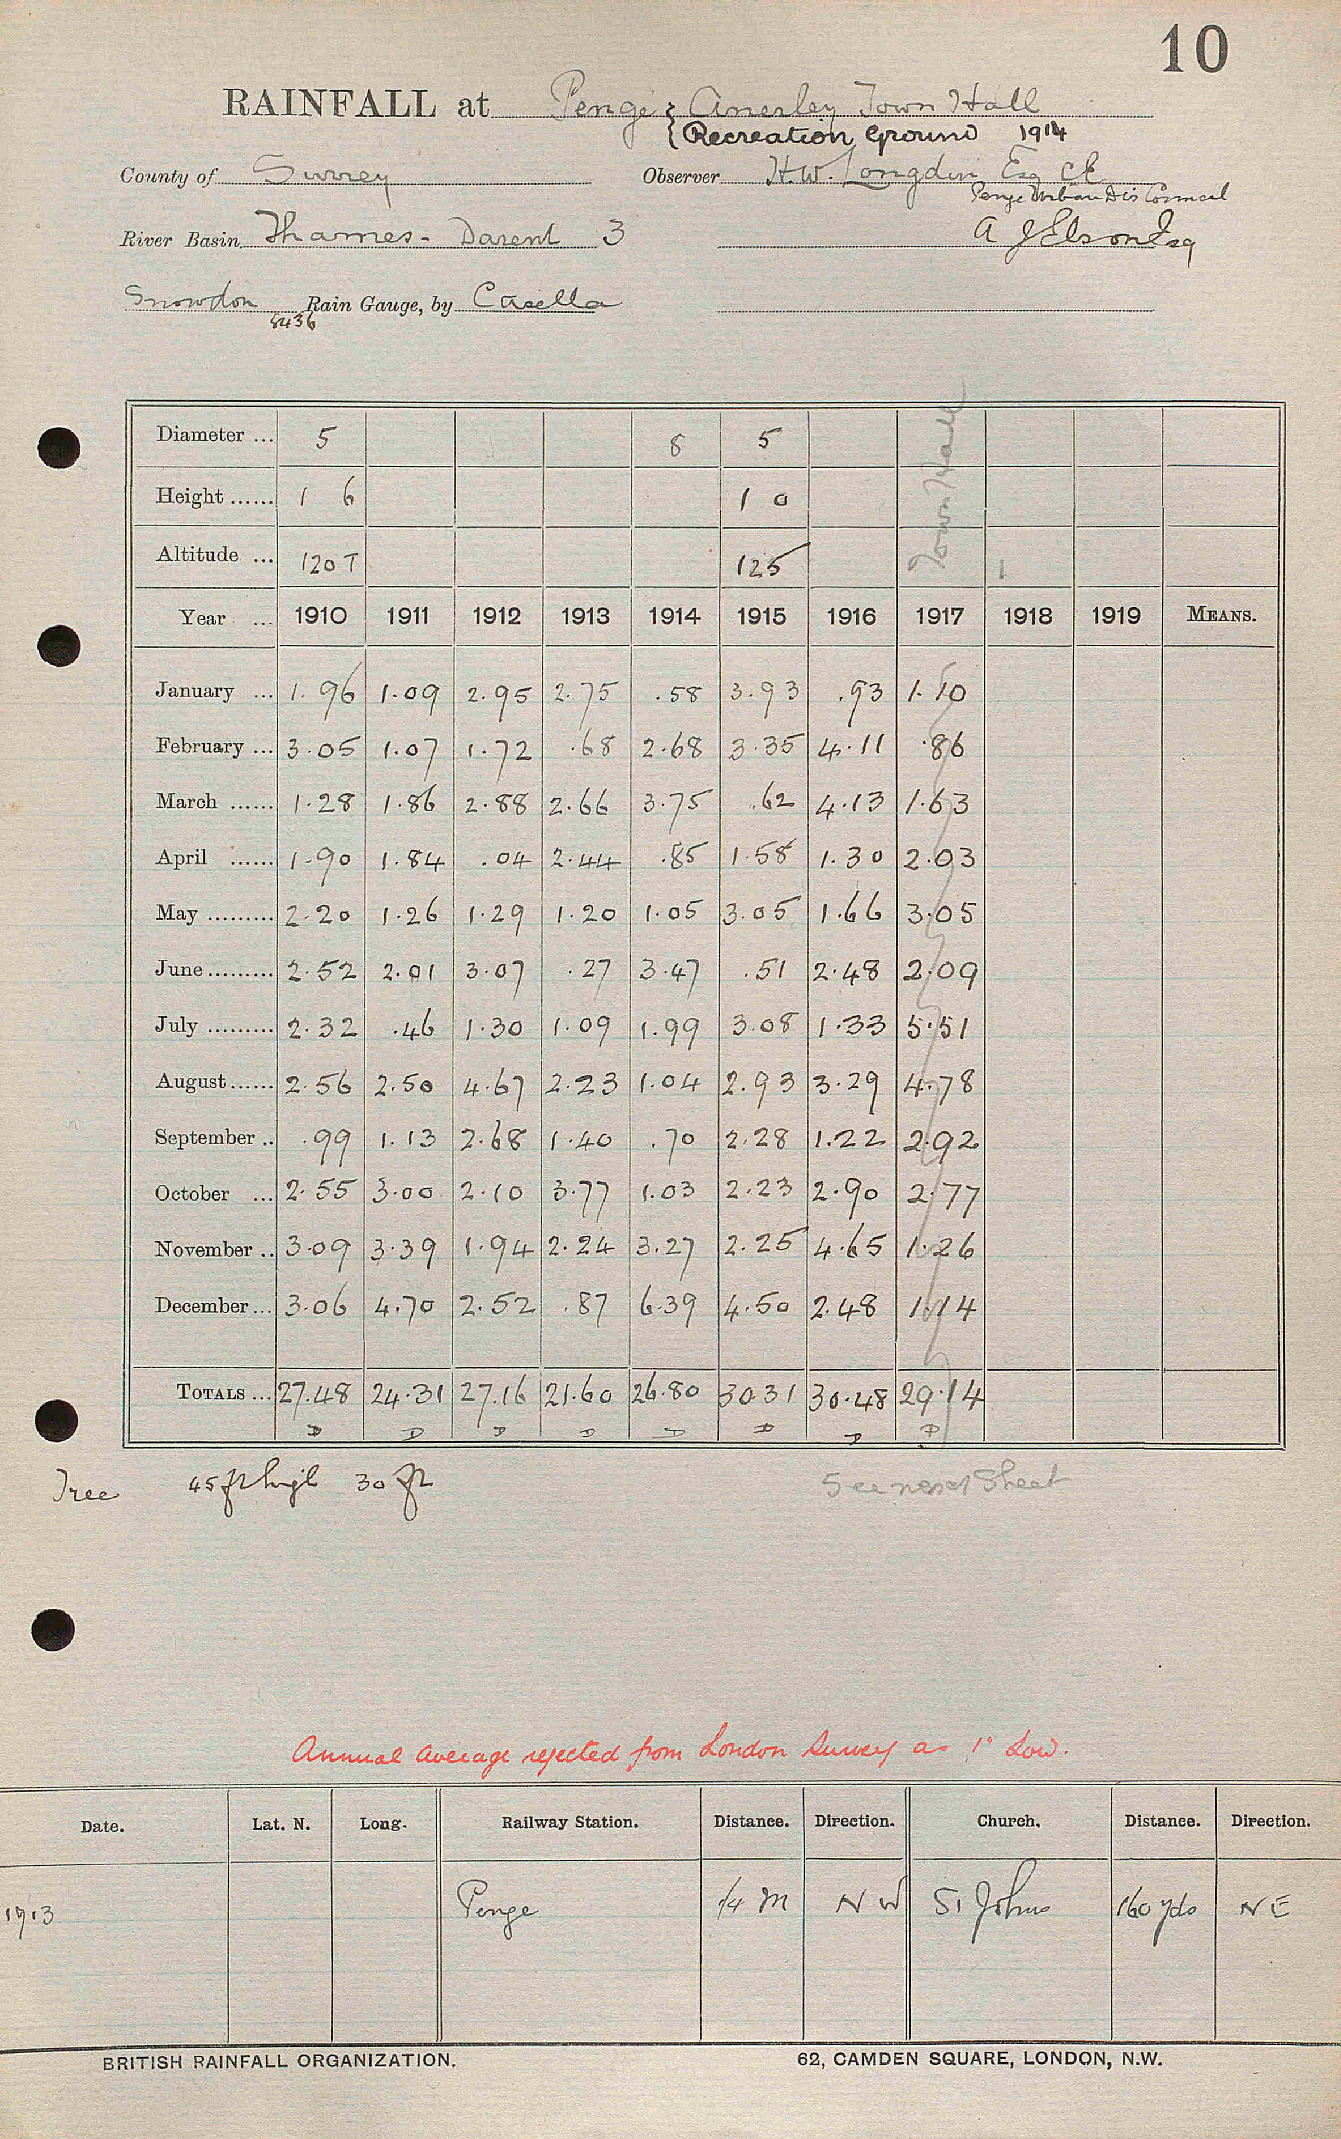 10
RAINFALL at Penge { Anerley Town Hall
{ Recreation Ground 1914
County of Surrey Observer H.W. Longdin Esq CE
Penge Urban Dis Council
River Basin Thames - Darent 3 A J Elson Esq
Snowdon Rain Gauge, by Casella
8436
Diameter ... 5 8 5
Height ...... 1 6 1 0
Altitude ... 120 T 125
Town Hall
Year ... 1910 1911 1912 1913 1914 1915 1916 1917 1918 1919 MEANS.
January ... 1.96 1.09 2.95 2.75 .58 3.93 .93 1.10
February ... 3.05 1.07 1.72 .68 2.68 3.35 4.11 .86
March ...... 1.28 1.86 2.88 2.66 3.75 .62 4.13 1.63
April ...... 1.90 1.84 .04 2.44 .85 1.58 1.30 2.03
May ......... 2.20 1.26 1.29 1.20 1.05 3.05 1.66 3.05
June ......... 2.52 2.01 3.07 .27 3.47 .51 2.48 2.09
July ......... 2.32 .46 1.30 1.09 1.99 3.08 1.33 5.51
August ...... 2.56 2.50 4.67 2.23 1.04 2.93 3.29 4.78
September .. .99 1.13 2.68 1.40 .70 2.28 1.22 2.92
October ... 2.55 3.00 2.10 3.77 1.03 2.23 2.90 2.77
November .. 3.09 3.39 1.94 2.24 3.27 2.25 4.65 1.26
December ... 3.06 4.70 2.52 .87 6.39 4.50 2.48 1.14
TOTALS ... 27.48 24.31 27.16 21.60 26.80 30.31 30.48 29.14
D D D D D D D D
Tree 45 ft high 30 ft See next Sheet
Annual average rejected from London Survey as 1" low.
Date. Lat. N. Long. Railway Station. Distance. Direction. Church. Distance. Direction.
1913 Penge 1/4 M N W St Johns 160 yds N E
BRITISH RAINFALL ORGANIZATION. 62, CAMDEN SQUARE, LONDON, N.W.